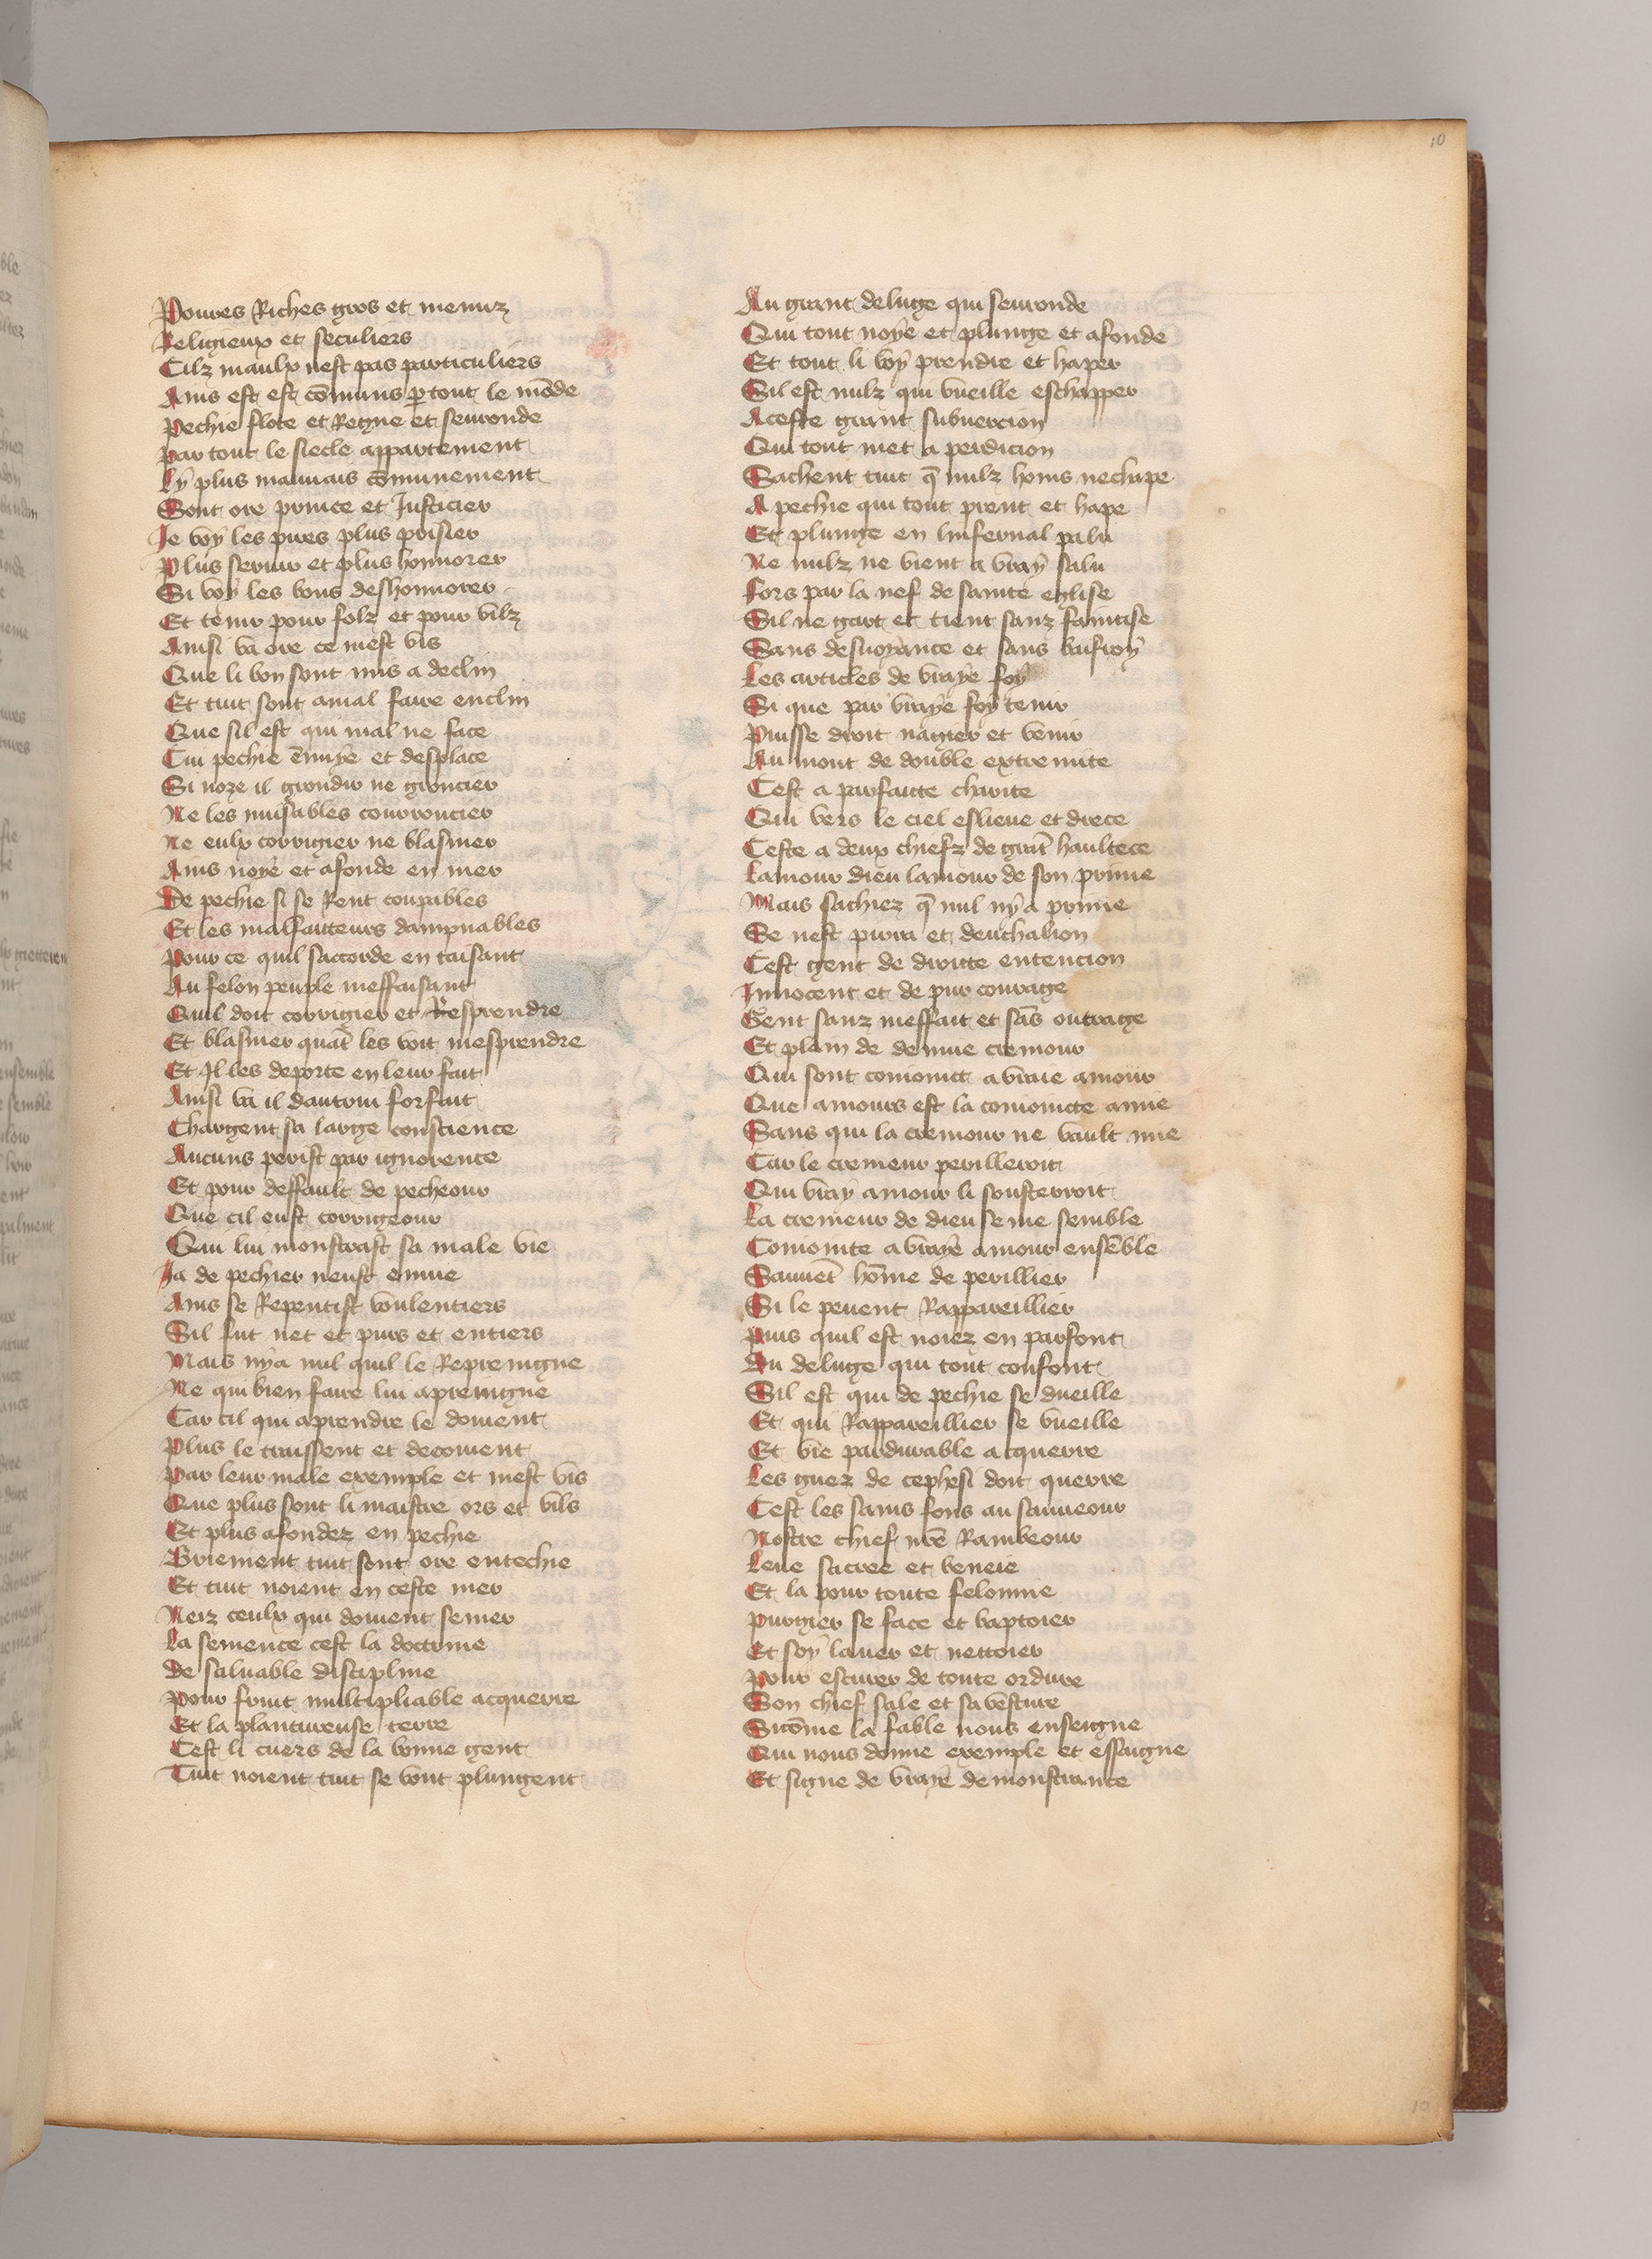 10
Poures Riches gros et menuz
Religieux et seculiers
Cilz maulx nest pas particuliers
Ains est est cōmuns ꝑtout le mōde
Pechie flote et Regne et seuronde
Par tout le siecle appartement
Ly plus mauuais cōmunement
Sont ore prince et Justicier
Je voy les pires plus prisier
Plus seruir et plus honnorer
Si voy les bons deshonnorer
Et tenir pour folz et pour vilz
Ainsi va ore ce mest vis
Que li bon sont mis a declin
Et tuit sont amal faire enclin
Que sil est qui mal ne face
Cui pechie ennuye et desplace
Si noze il grondir ne groncier
Ne les nuisables courroncier
Ne eulx corrigier ne blasmer
Ains noye et afonde en mer
De pechie si se Rent coupables
Et les malfaitteurs dampnables
Pour ce quil saccorde en taisant
Au felon peuple meffaisant
Quil doit corrigier et Resprendre
Et blasmer quāt les voit mesprendre
Et Il les deporte en leur fait
Ainsi va il dautrui forfait
Chargent sa large conscience
Aucuns perist par ignorence
Et pour deffault de pecheour
Que cil eust corrigeour
Qui lui monstrast sa male vie
Ja de pechier neust enuie
Ains se Repentist voulentiers
Sil fut net et purs et entiers
Mais nya nul quil le Repreingne
Ne qui bien faire lui apreingne
Car cil qui aprendre le doiuent
Plus le traissent et decoiuent
Par leur male exemple et mest vis
Que plus sont li maistre ors et vils
Et plus afondez en pechie
Briement tuit sont ore entechie
Et tuit noient en ceste mer
Neiz ceulx qui doiuent semer
La semence cest la doctrine
De saluable discipline
Pour fruit multipliable acquerre
Et la plantureuse terre
Cest li cuers de la bonne gent
Tuit noient tuit se vont plungent
Au grant deluge qui seuronde
Qui tout noye et plunge et afonde
Et tout li voy prendre et haper
Sil est nulz qui vueille eschapper
Aceste grant subuercion
Qui tout met a perdicion
Sachent tuit q̄ nulz homs nechape
A pechie qui tout prent et hape
Et plunge en linfernal palu
Ne nulz ne vient a vray salu
Fors par la nef de sainte eglise
Sil ne gart et tient sanz faintise
Sans desuoyance et sans
Les articles de vraye foy
Si que par vraye foy tenir
Puisse droit nagier et venir
Au mont de double extremite
Cest a parfaite charite
Qui vers le ciel eslieue et drece
Ceste a deux chiefz de grāt haultece
Lamour dieu lamour de son prime
Mais sachiez q̄ nul ny a prime
Se nest pirra et deuchalion
Cest gent de droitte entencion
Innocent et de pur courage
Gent sanz meffait et sās outrage
Et plain de deuine cremour
Qui sont conioinct a vraie amour
Que amours est la conioincte amie
Sans qui la cremour ne vault mie
Car le cremeur perilleroit
Qui vray amour li sousterroit
La cremeur de dieu se me semble
Coniointe a vraye amour ensēble
Sauuēt hōme de perillier
Si le peuent Rappareillier
Puis quil est noiez en parfont
Du deluge qui tout confont
Sil est qui de pechie se dueille
Et qui Rappareillier se vueille
Et vie pardurable acquerre
Les guez de cephesi doit querre
Cest les sains fons au sauueour
Nostre chief nr̄e Raimbeour
Leue sacree et beneie
Et la pour toute felonnie
Purgier se face et baptoier
Et soy lauer et nettoier
Pour escurer de toute ordure
Son chief sale et sa vesture
Sicōme la fable nous enseigne
Qui nous donne exemple et essaigne
Et signe de vraye demonstrance
10